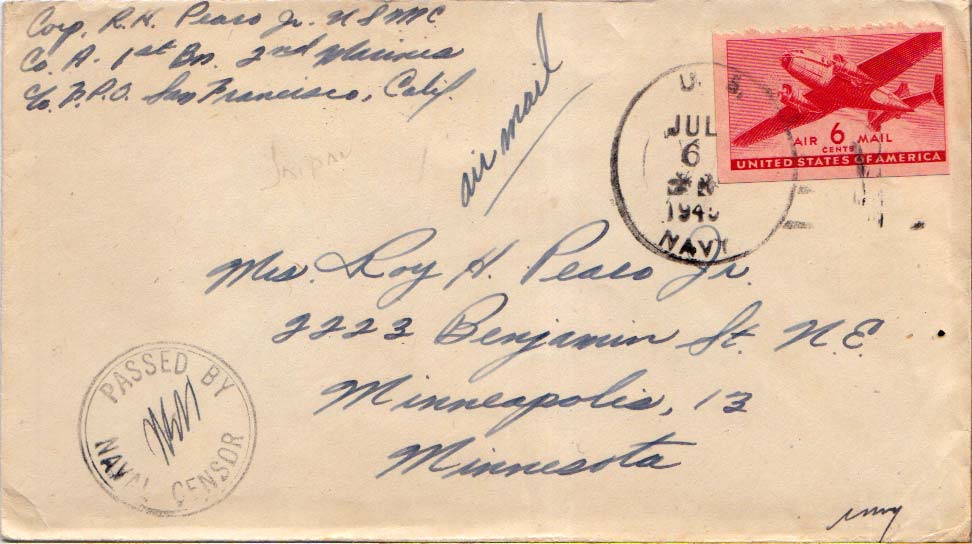 Corp. R. H. Peaco Jr. USMC
Co. A. 1st Bn. 2nd Marines
c/o F.P.O. San Francisco, Calif.
air mail
U. S.
JUL
6
NAVY
AIR 6 MAIL
CENTS
UNITED STATES OF AMERICA
Mrs. Roy H. Peaco Jr.
2223 Benjamin St. N.E.
Minneapolis, 13
Minnesota
PASSED BY
NAVAL CENSOR